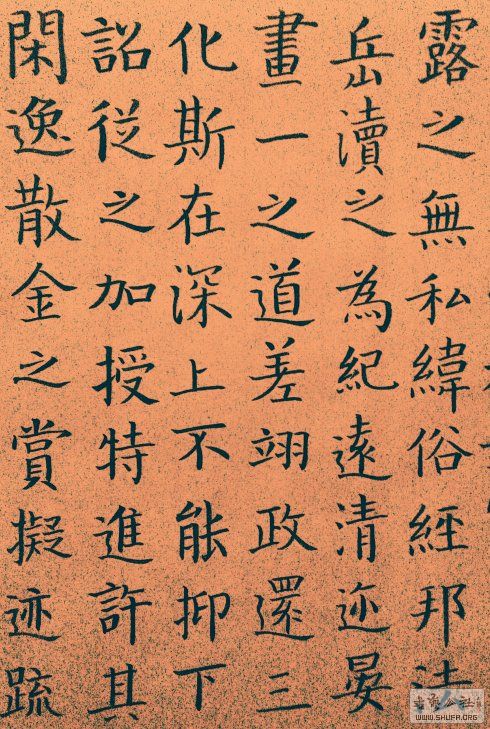 露之無私緯俗經邦法
岳瀆之為紀遠清迩晏
畫一之道差翊政還三
化斯在深上不能抑下
詔從之加授特進許其
閑逸散金之賞擬迹疏
WWW.SHUFA.ORG